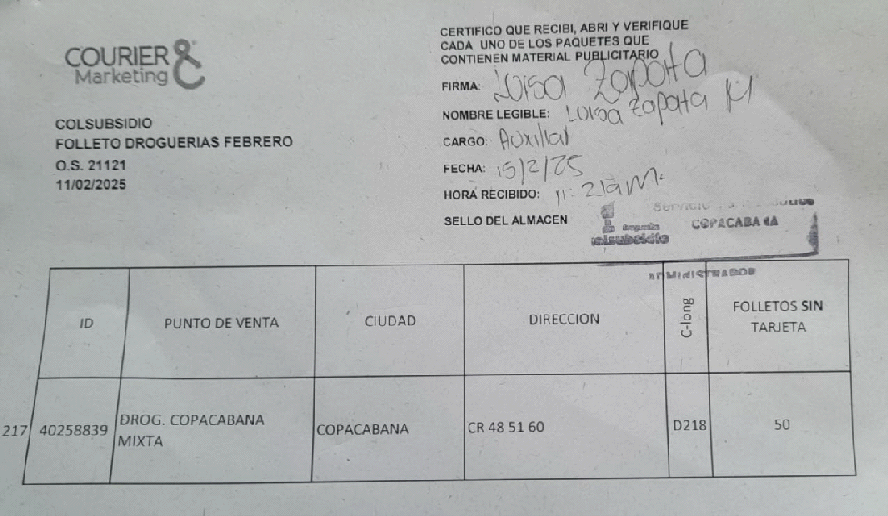 COURIER &
Marketing
COLSUBSIDIO
FOLLETO DROGUERIAS FEBRERO
O.S. 21121
11/02/2025
CERTIFICO QUE RECIBI, ABRI Y VERIFIQUE
CADA UNO DE LOS PAQUETES QUE
CONTIENEN MATERIAL PUBLICITARIO
FIRMA: Luisa Zapata
NOMBRE LEGIBLE: Luisa Zapata M
CARGO: Auxiliar
FECHA: 15/2/25
HORA RECIBIDO: 11:21am.
SELLO DEL ALMACEN
COPACABANA
colsubsidio
ADMINISTRADOR
ID PUNTO DE VENTA CIUDAD DIRECCION C-long FOLLETOS SIN TARJETA
217 40258839 DROG. COPACABANA MIXTA COPACABANA CR 48 51 60 D218 50